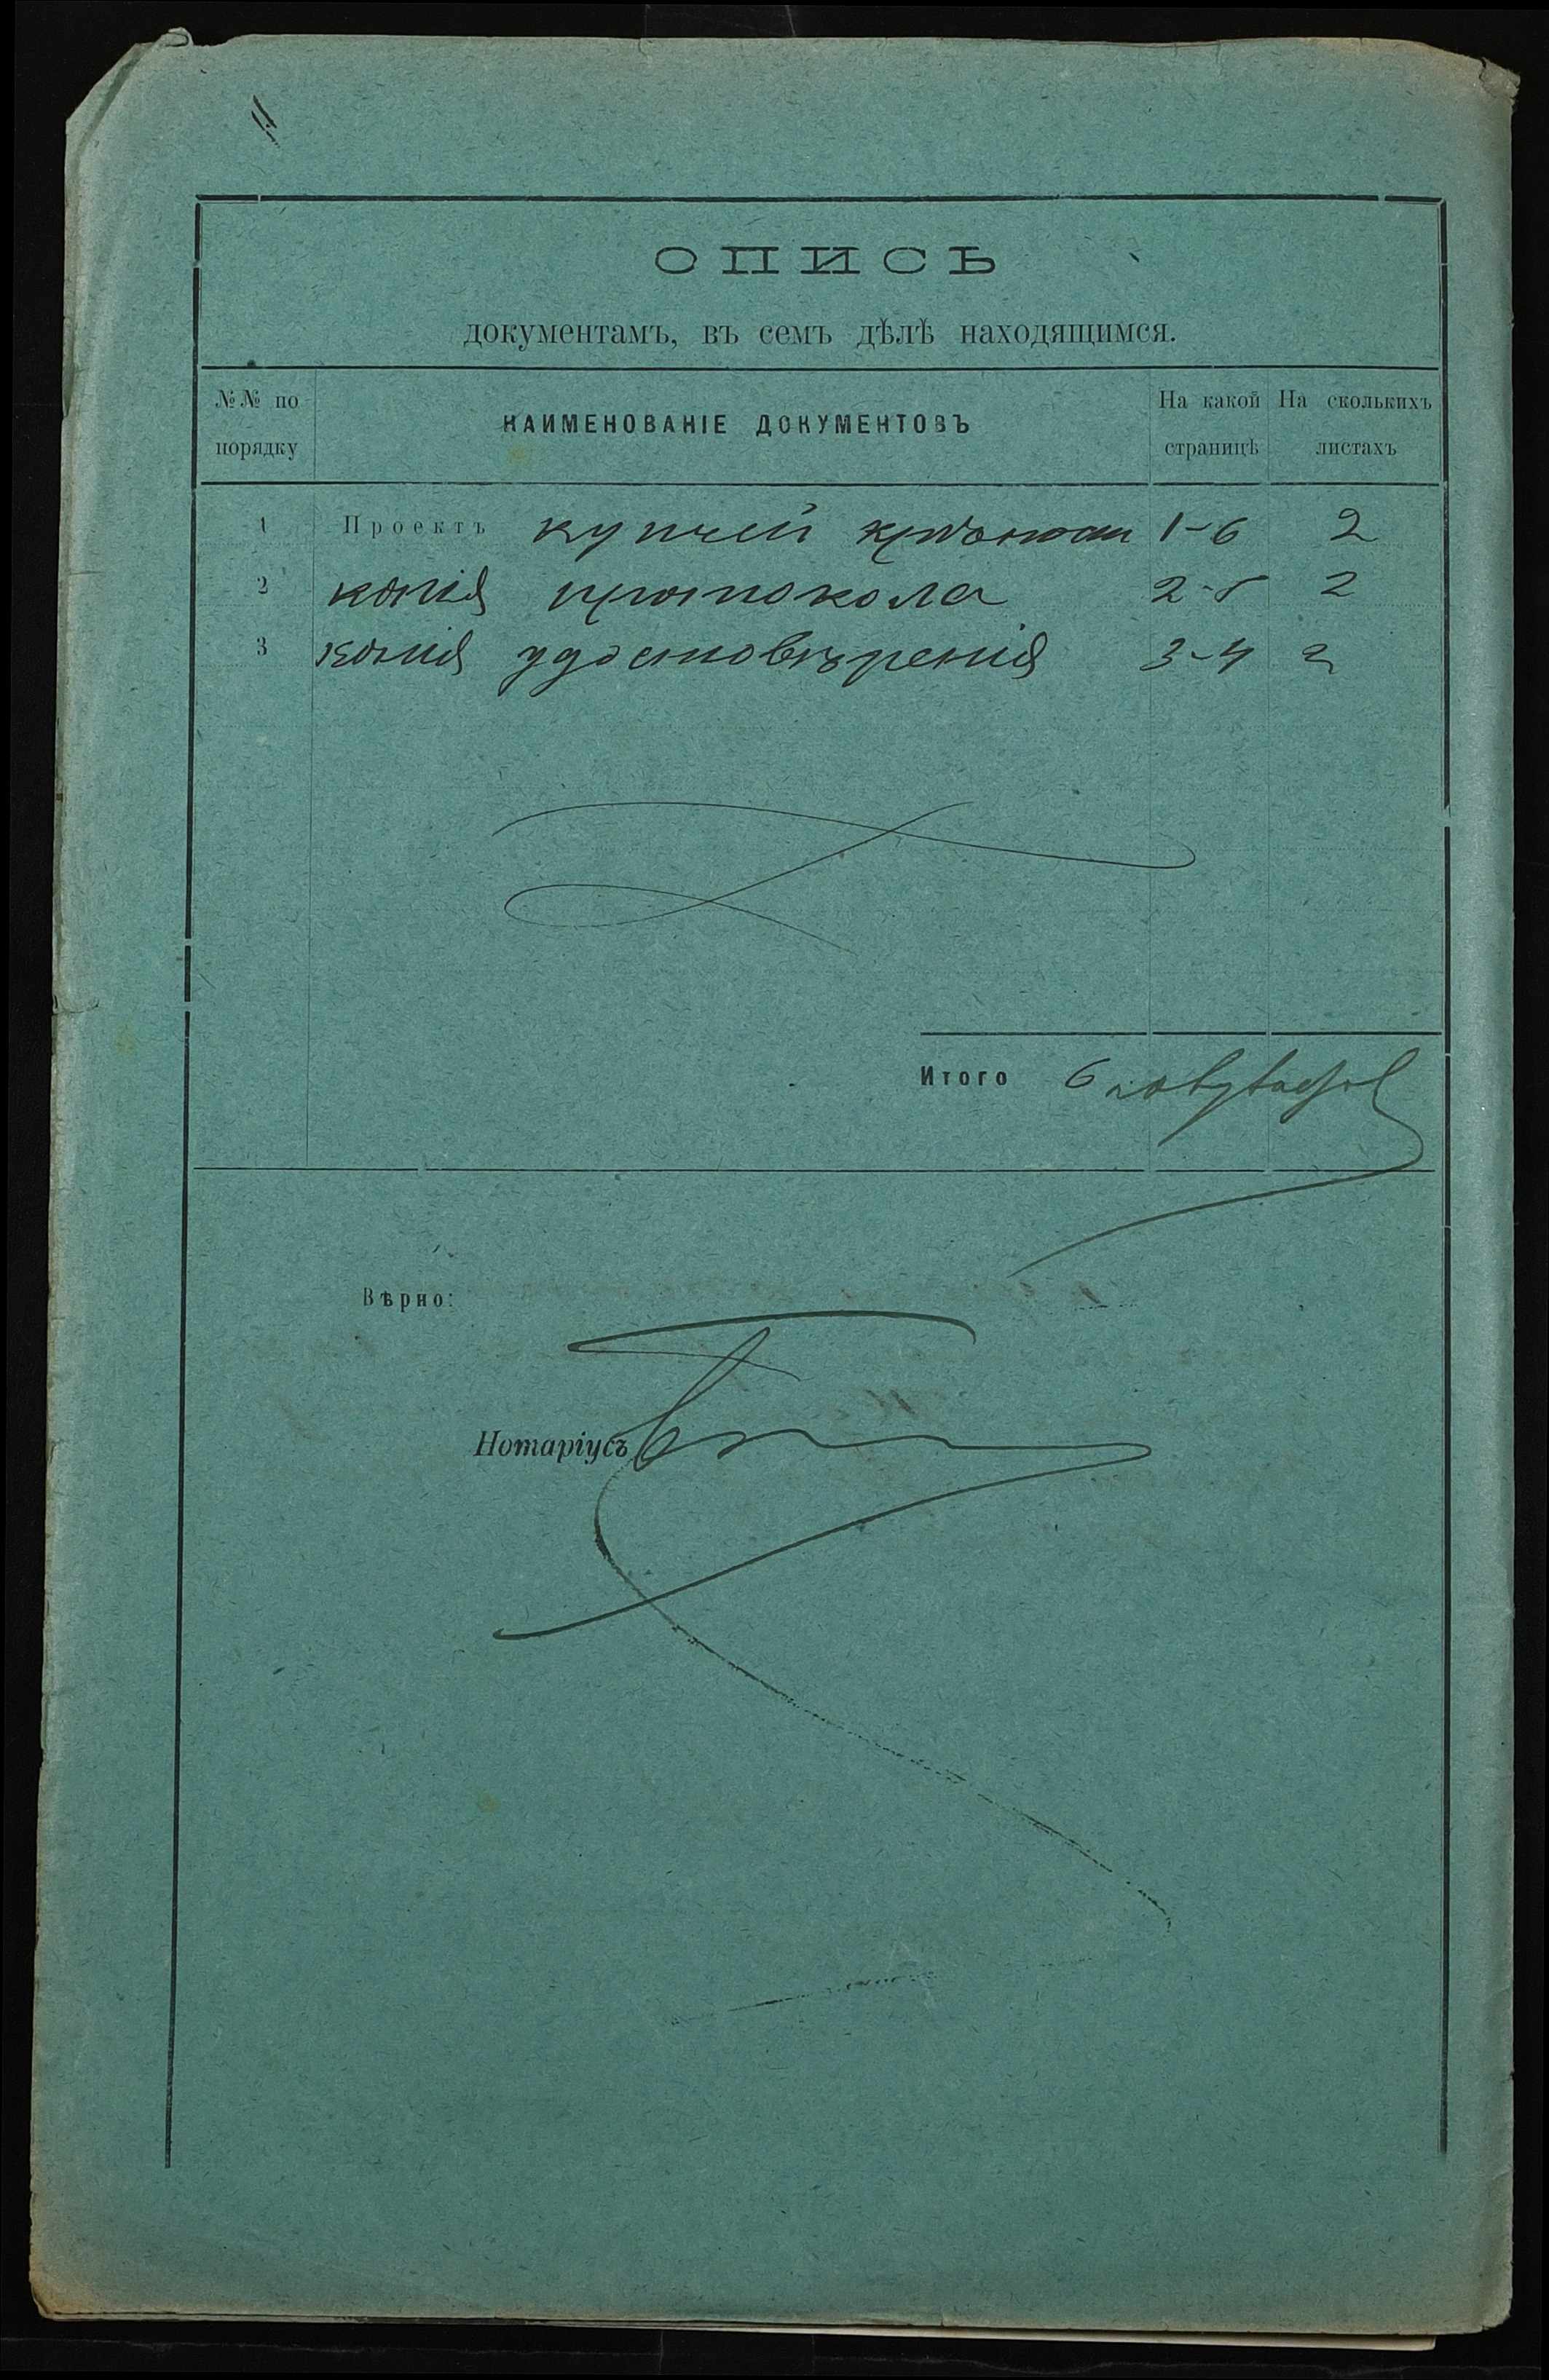 ОПИСЬ
документамъ, въ семъ дѣлѣ находящимся.
№№ по порядку
НАИМЕНОВАНІЕ ДОКУМЕНТОВЪ
На какой страницѣ
На сколькихъ листахъ
1 Проектъ купчей крѣпости 1-6 2
2 копія протокола 2-5 2
3 копія удостовѣренія 3-4 2
Итого 6
Вѣрно:
Нотаріусъ